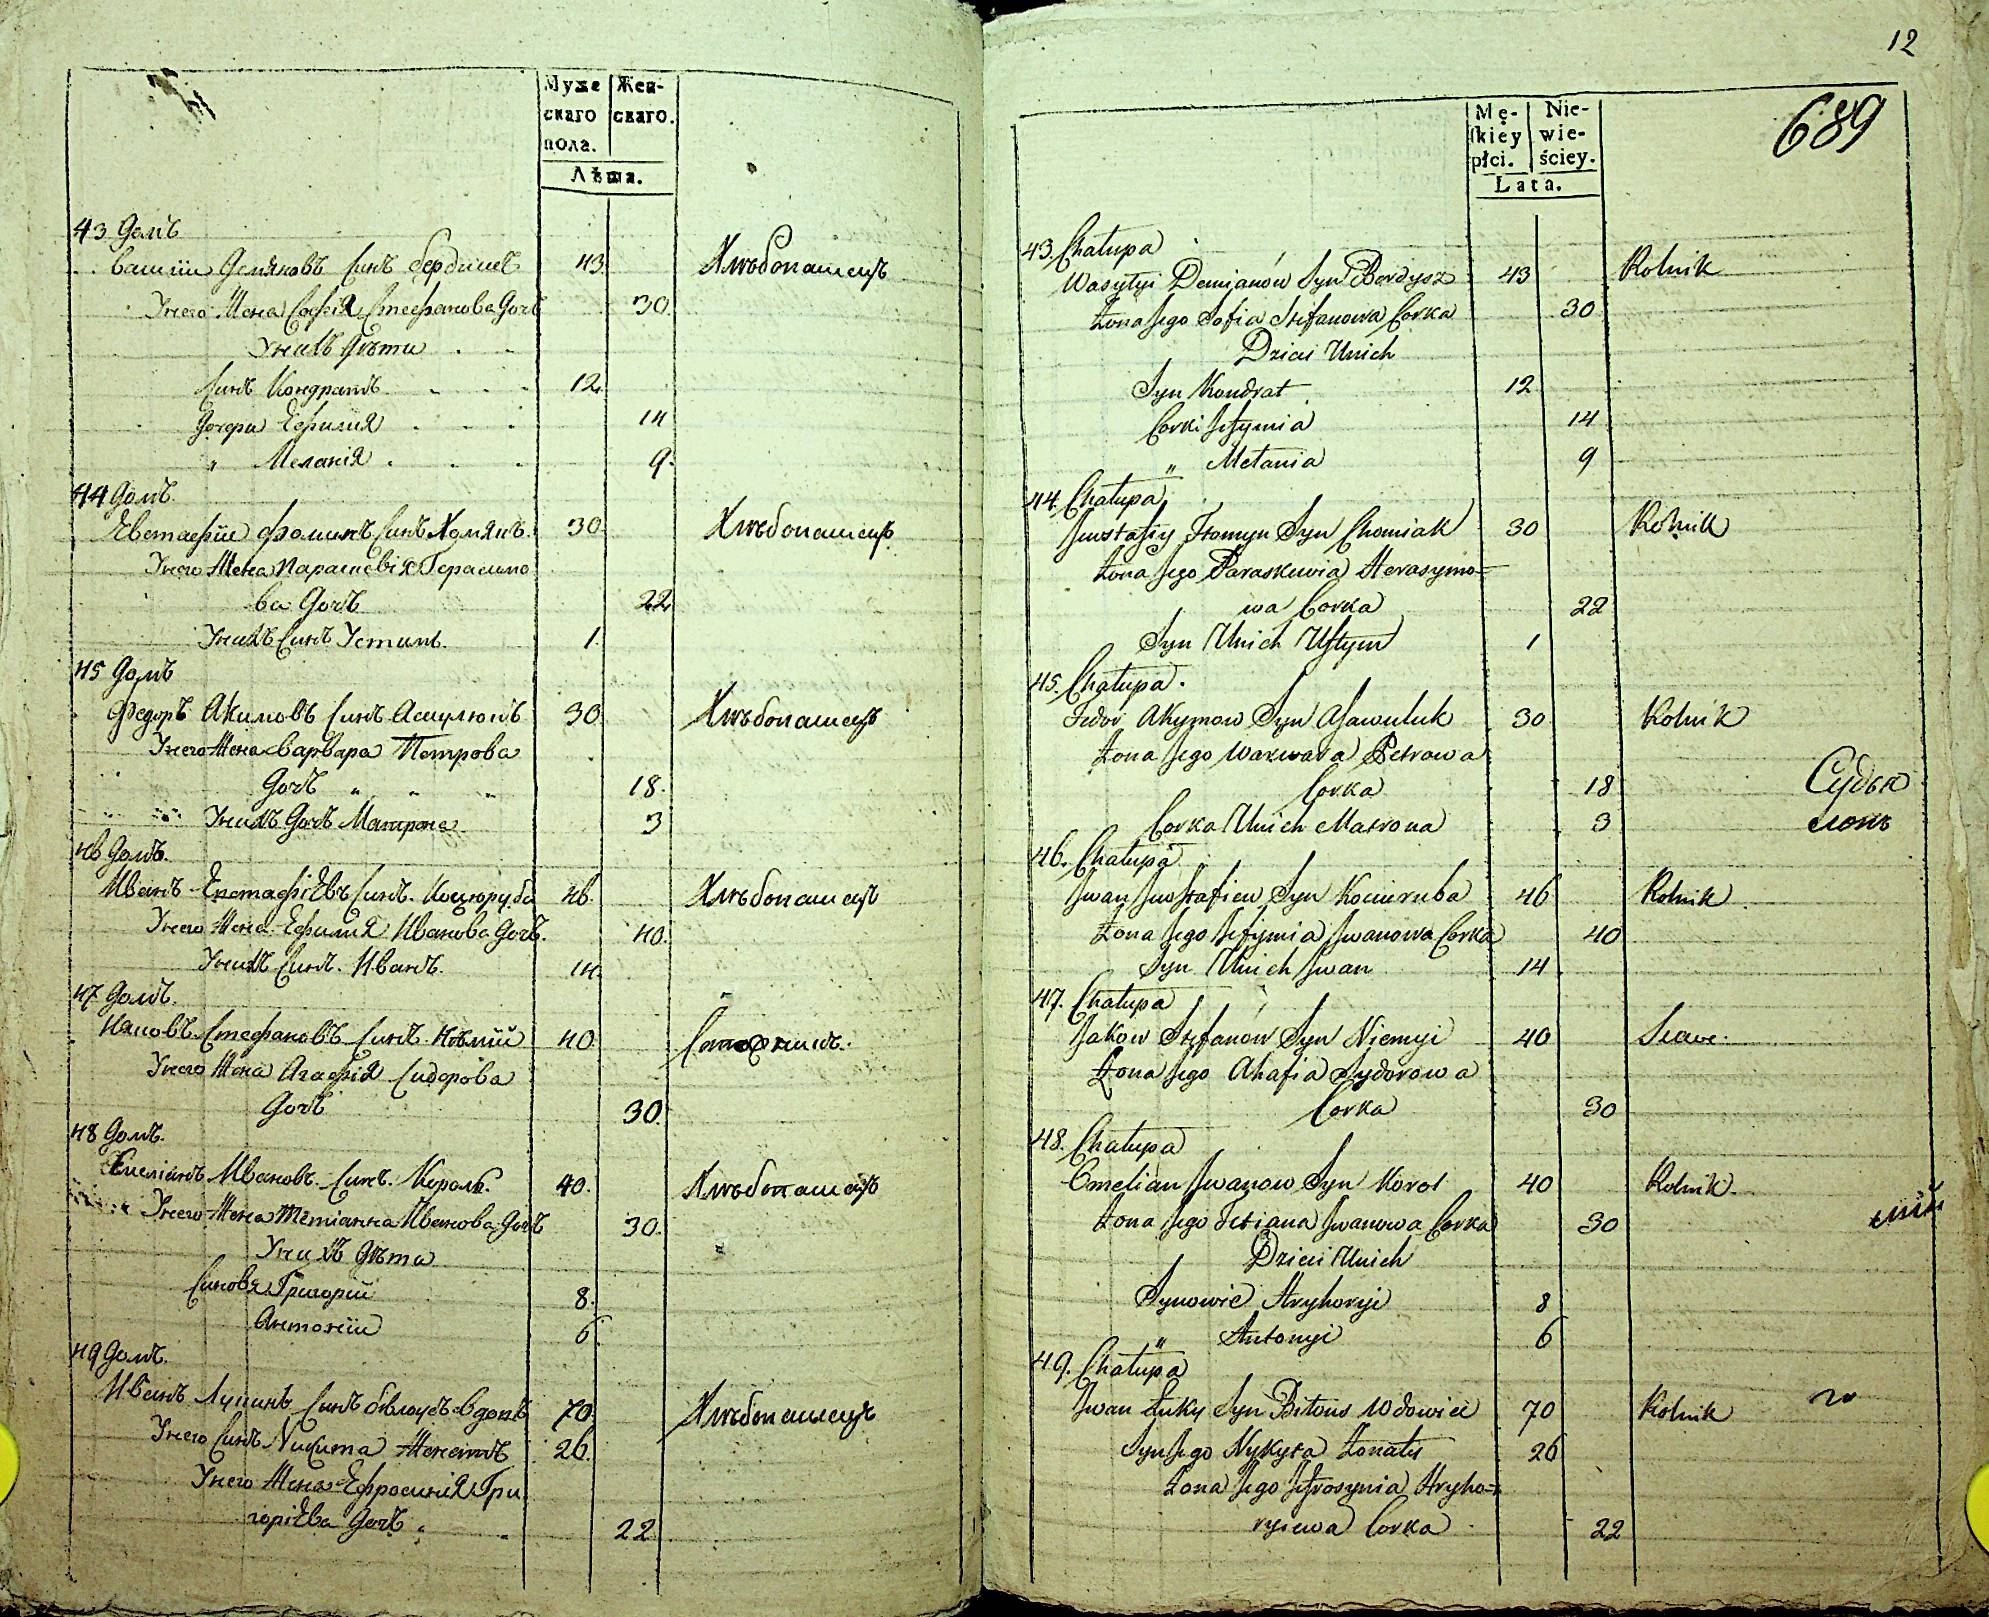 Муже
скаго
пола.
Жен-
скаго.
Лѣта.
43 Домъ
Васили Демяновъ Синъ Бердишъ 43 Хлѣбопашецъ
У него Жена Софія Стефанова Дочь 30
У нихъ Дѣти
Синъ Кондратъ 12
Дочери Ефимия 14
" Меланія 9
44 Домъ
Евстафіи Фоминъ Синъ Хомякъ 30 Хлѣбопашецъ
У него Жена Параскевія Герасимо
ва Дочь 22
У нихъ Синъ Устимъ 1
45 Домъ
Федоръ Акимовъ Синъ 30 Хлѣбопашецъ
У него Жена Варвара Петрова
Дочь " " " 18
У нихъ Дочь Матрона 3
46 Домъ.
Иванъ Евстафіевъ Синъ Коцюруба 46 Хлѣбопашецъ
У него Жена Ефимия Иванова Дочь 40
У нихъ Синъ Иванъ 14
47 Домъ.
Яковъ Стефановъ Синъ Нѣмій 40
У него Жена Агафія Сидорова
Дочь 30
48 Домъ.
Емеліянъ Ивановъ Синъ Король 40 Хлѣбопашецъ
У него Жена Тетіанна Иванова Дочь 30
У нихъ Дѣти
Синовя Григории 8
Антонии 6
49 Домъ.
Иванъ Лукинъ Синъ Бѣлоусъ вдовъ 70 Хлѣбопашецъ
У него Синъ Никита Женатъ 26
У него Жена Ефросинія Гри
горіева Дочь " 22
12
689
Mę-
skiey
płci.
Nie-
wie-
ściey.
Lata.
43. Chałupa
Wasylyi Demianów Syn Berdysz 43 Rolnik
Żona Jego Sofia Stefanowa Corka 30
Dzieci Unich
Syn Kondrat 12
Corki Jefymia 14
" Melania 9
44. Chałupa
Jwstafiy Homyn Syn Chomiak 30 Rolnik
Żona Jego Paraskewia Herasymo=
wa Corka 22
Syn Unich Ustym 1
45. Chałupa.
Fedor Akymow Syn Asawuluk 30 Rolnik
Żona Jego Warwara Petrowa
Corka 18
Corka Unich Matrona 3
46. Chałupa
Jwan Jwstafiew Syn Kociuruba 46 Rolnik
Żona Jego Jefymia Jwanowa Corka 40
Syn Unich Jwan 14
47. Chałupa
Jakow Stefanów Syn Niemyi 40
Żona Jego Ahafia Sydorowa
Corka 30
48. Chałupa
Omelian Jwanow Syn Korol 40 Rolnik
Żona Jego Tetiana Jwanowa Corka 30
Dzieci Unich
Synowie Hryhoryi 8
" Antonyi 6
49. Chałupa
Jwan Łuky Syn Biłous Wdowiec 70 Rolnik
Syn Jego Nykyta Żonaty 26
Żona Jego Jefrosynia Hryho=
ryiewa Corka 22